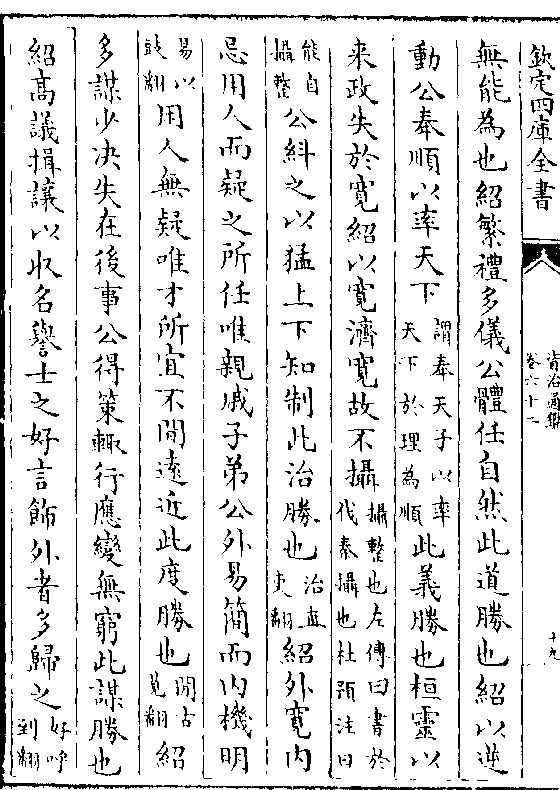 欽定四庫全書
資治通鑑
卷六十二
十九
無能為也紹繁禮多儀公體任自然此道勝也紹以逆
動公奉順以率天下謂奉天子以率天下於理為順此義勝也桓靈以
来政失於寛紹以寛濟寛故不攝攝整也左傳曰書於伐秦攝也杜預注曰
能自攝整公糾之以猛上下知制此治勝也治直吏翻紹外寛内
忌用人而疑之所任唯親戚子弟公外易簡而内機明
易以豉翻用人無疑唯才所宜不間遠近此度勝也間古莧翻紹
多謀少决失在後事公得策輙行應變無窮此謀勝也
紹高議揖讓以收名譽士之好言飾外者多歸之好呼到翻